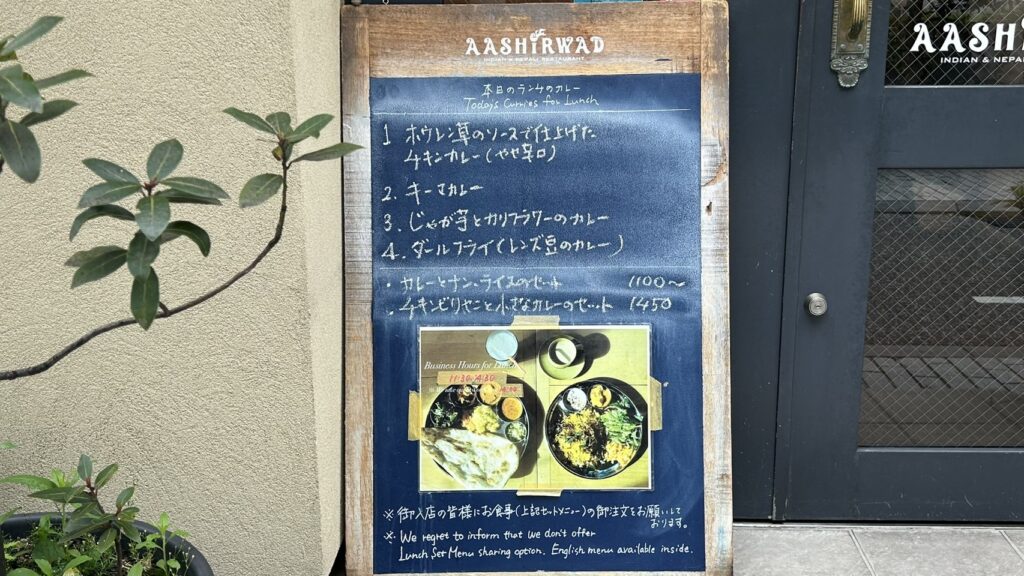 AASHIRWAD
INDIAN & NEPALI RESTAURANT
本日のランチのカレー
Today's Curries for Lunch
1 ホウレン草のソースで仕上げた
チキンカレー(やや辛口)
2. キーマカレー
3. じゃが芋とカリフラワーのカレー
4. ダールフライ(レンズ豆のカレー)
・カレーとナン、ライスのセット 1100〜
・チキンビリヤニと小さなカレーのセット 1450
Business Hours for Lunch
11:30-14:30
※御入店の皆様にお食事(上記セットメニュー)の御注文をお願いして
おります。
※. We regret to inform that we don't offer
Lunch Set Menu sharing option. English menu available inside.
AASHI
INDIAN & NEPA